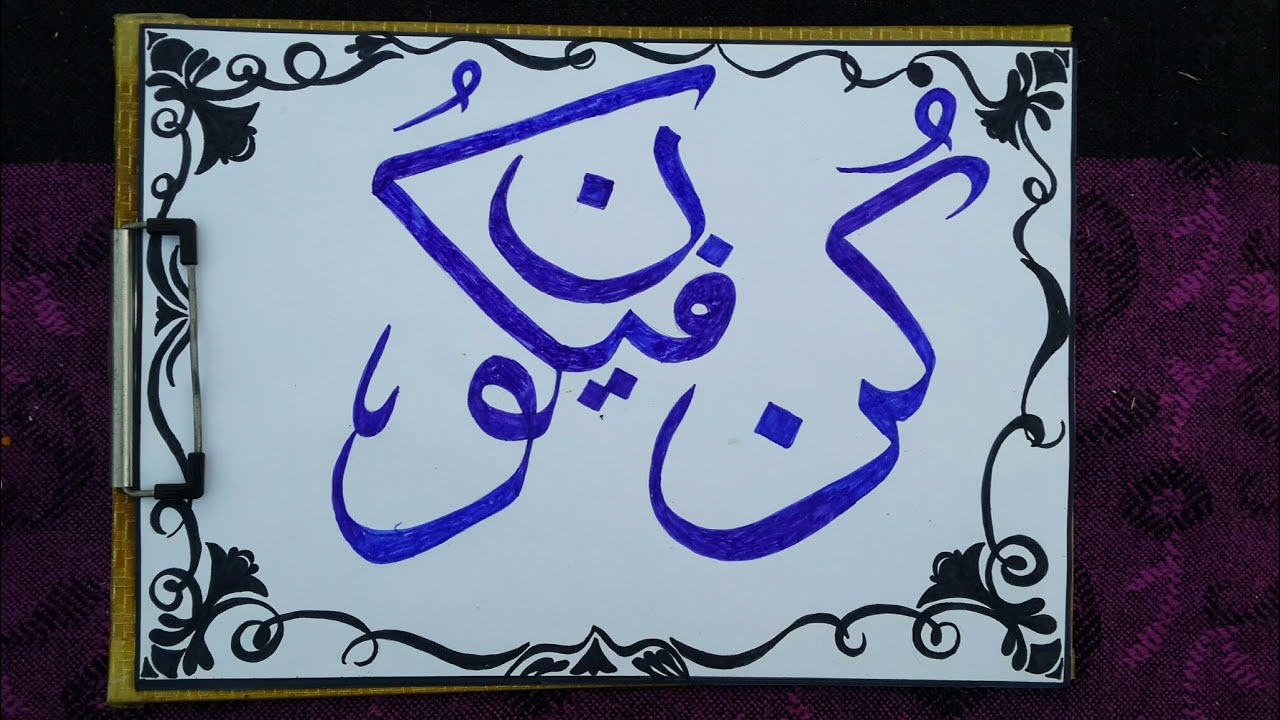 كُن فيكوُن